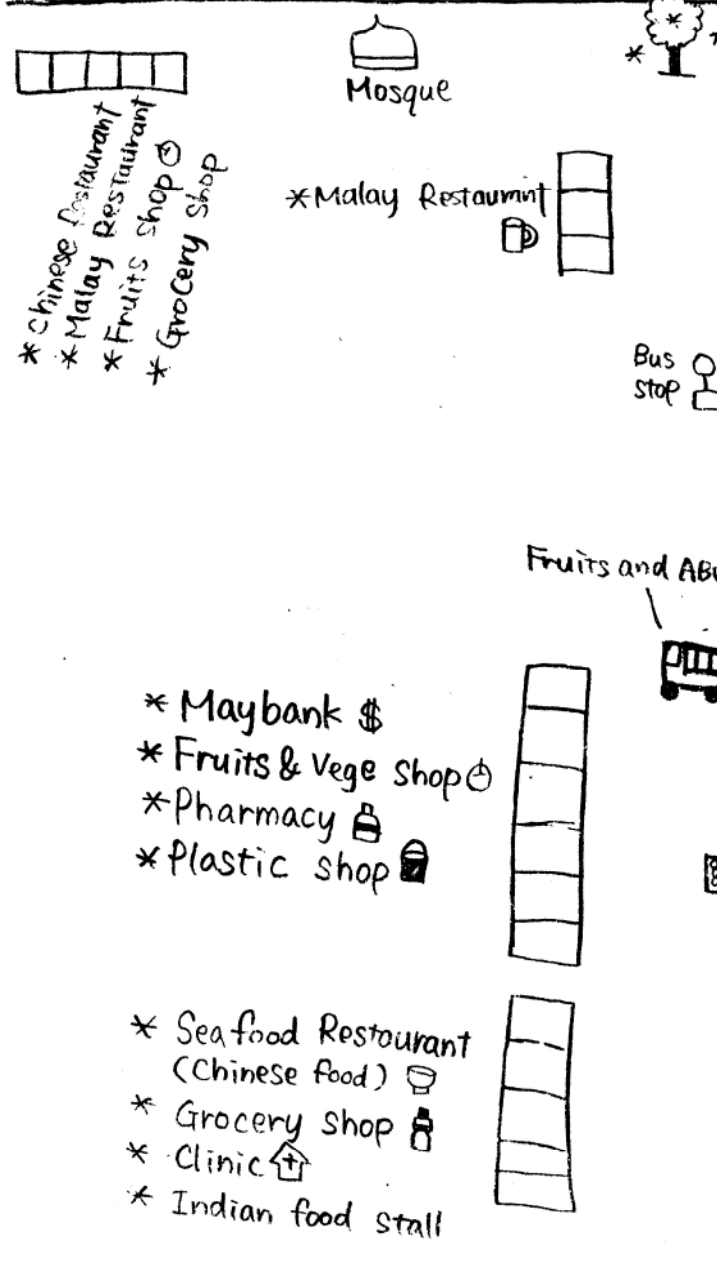 Mosque
* Chinese Restaurant
* Malay Restaurant
* Fruits shop
* Grocery Shop
* Malay Restaurant
Bus
stop
Fruits and
* Maybank $
* Fruits & Vege shop
* Pharmacy
* Plastic shop
* Seafood Restourant
(Chinese food)
* Grocery shop
* Clinic
* Indian food stall